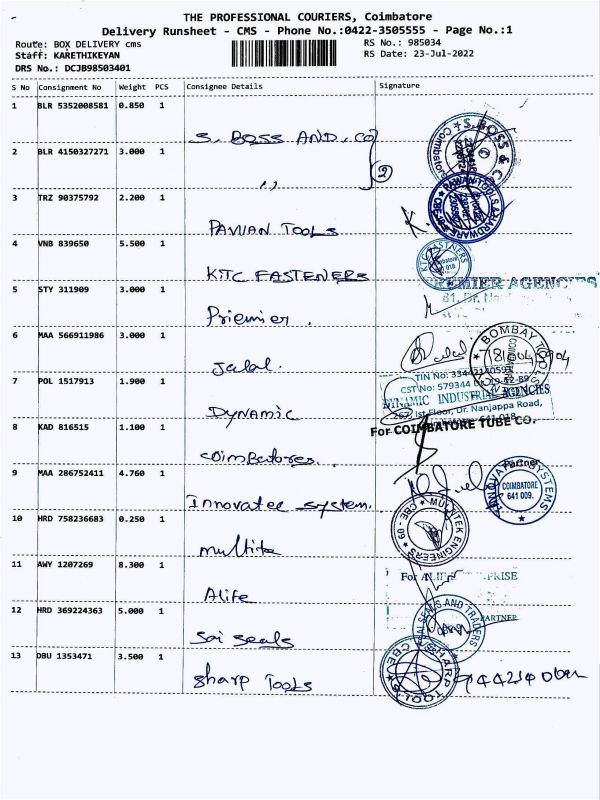 THE PROFESSIONAL COURIERS, Coimbatore
Delivery Runsheet - CMS - Phone No.:0422-3505555 - Page No.:1
Route: BOX DELIVERY cms
RS No.: 985034
Staff: KARETHIKEYAN
RS Date: 23-Jul-2022
DRS No.: DCJB98503401
S No Consignment No Weight PCS Consignee Details Signature
1 BLR 5352008581 0.850 1 S. BOSS AND . CO
2 BLR 4150327271 3.000 1 ,, 2
3 TRZ 90375792 2.200 1 PAWAN TOOLS
4 VNB 839650 5.500 1 KTC FASTENERS
5 STY 311909 3.000 1 Priemier .
6 MAA 566911986 3.000 1 Jalal.
7 POL 1517913 1.900 1 DYNAMIC
8 KAD 816515 1.100 1 Coimbatores.
9 MAA 286752411 4.760 1 Innovatee system.
10 HRD 758236683 0.250 1 multite
11 AWY 1207269 8.300 1 Alife
12 HRD 369224363 5.000 1 Sai seals
13 DBU 1353471 3.500 1 Sharp Tools
S. BOSS &
Coimbatore
PAWAN TOOLS & HARDWARE
KTC FASTENERS
REMIER AGENCIES
BOMBAY TOOLS
COIMBATORE
CST No: 579344
DYNAMIC INDUSTRIAL AGENCIES
267 Ist Floor, Dr. Nanjappa Road,
For COIMBATORE TUBE CO.
Partner
INNOVATIVE SYSTEMS
COIMBATORE
641 009.
MULTITEK ENGINEERS
CBE - 09
For
PRISE
PARTNER
SEALS AND TRADERS
SHARP TOOLS
CBE